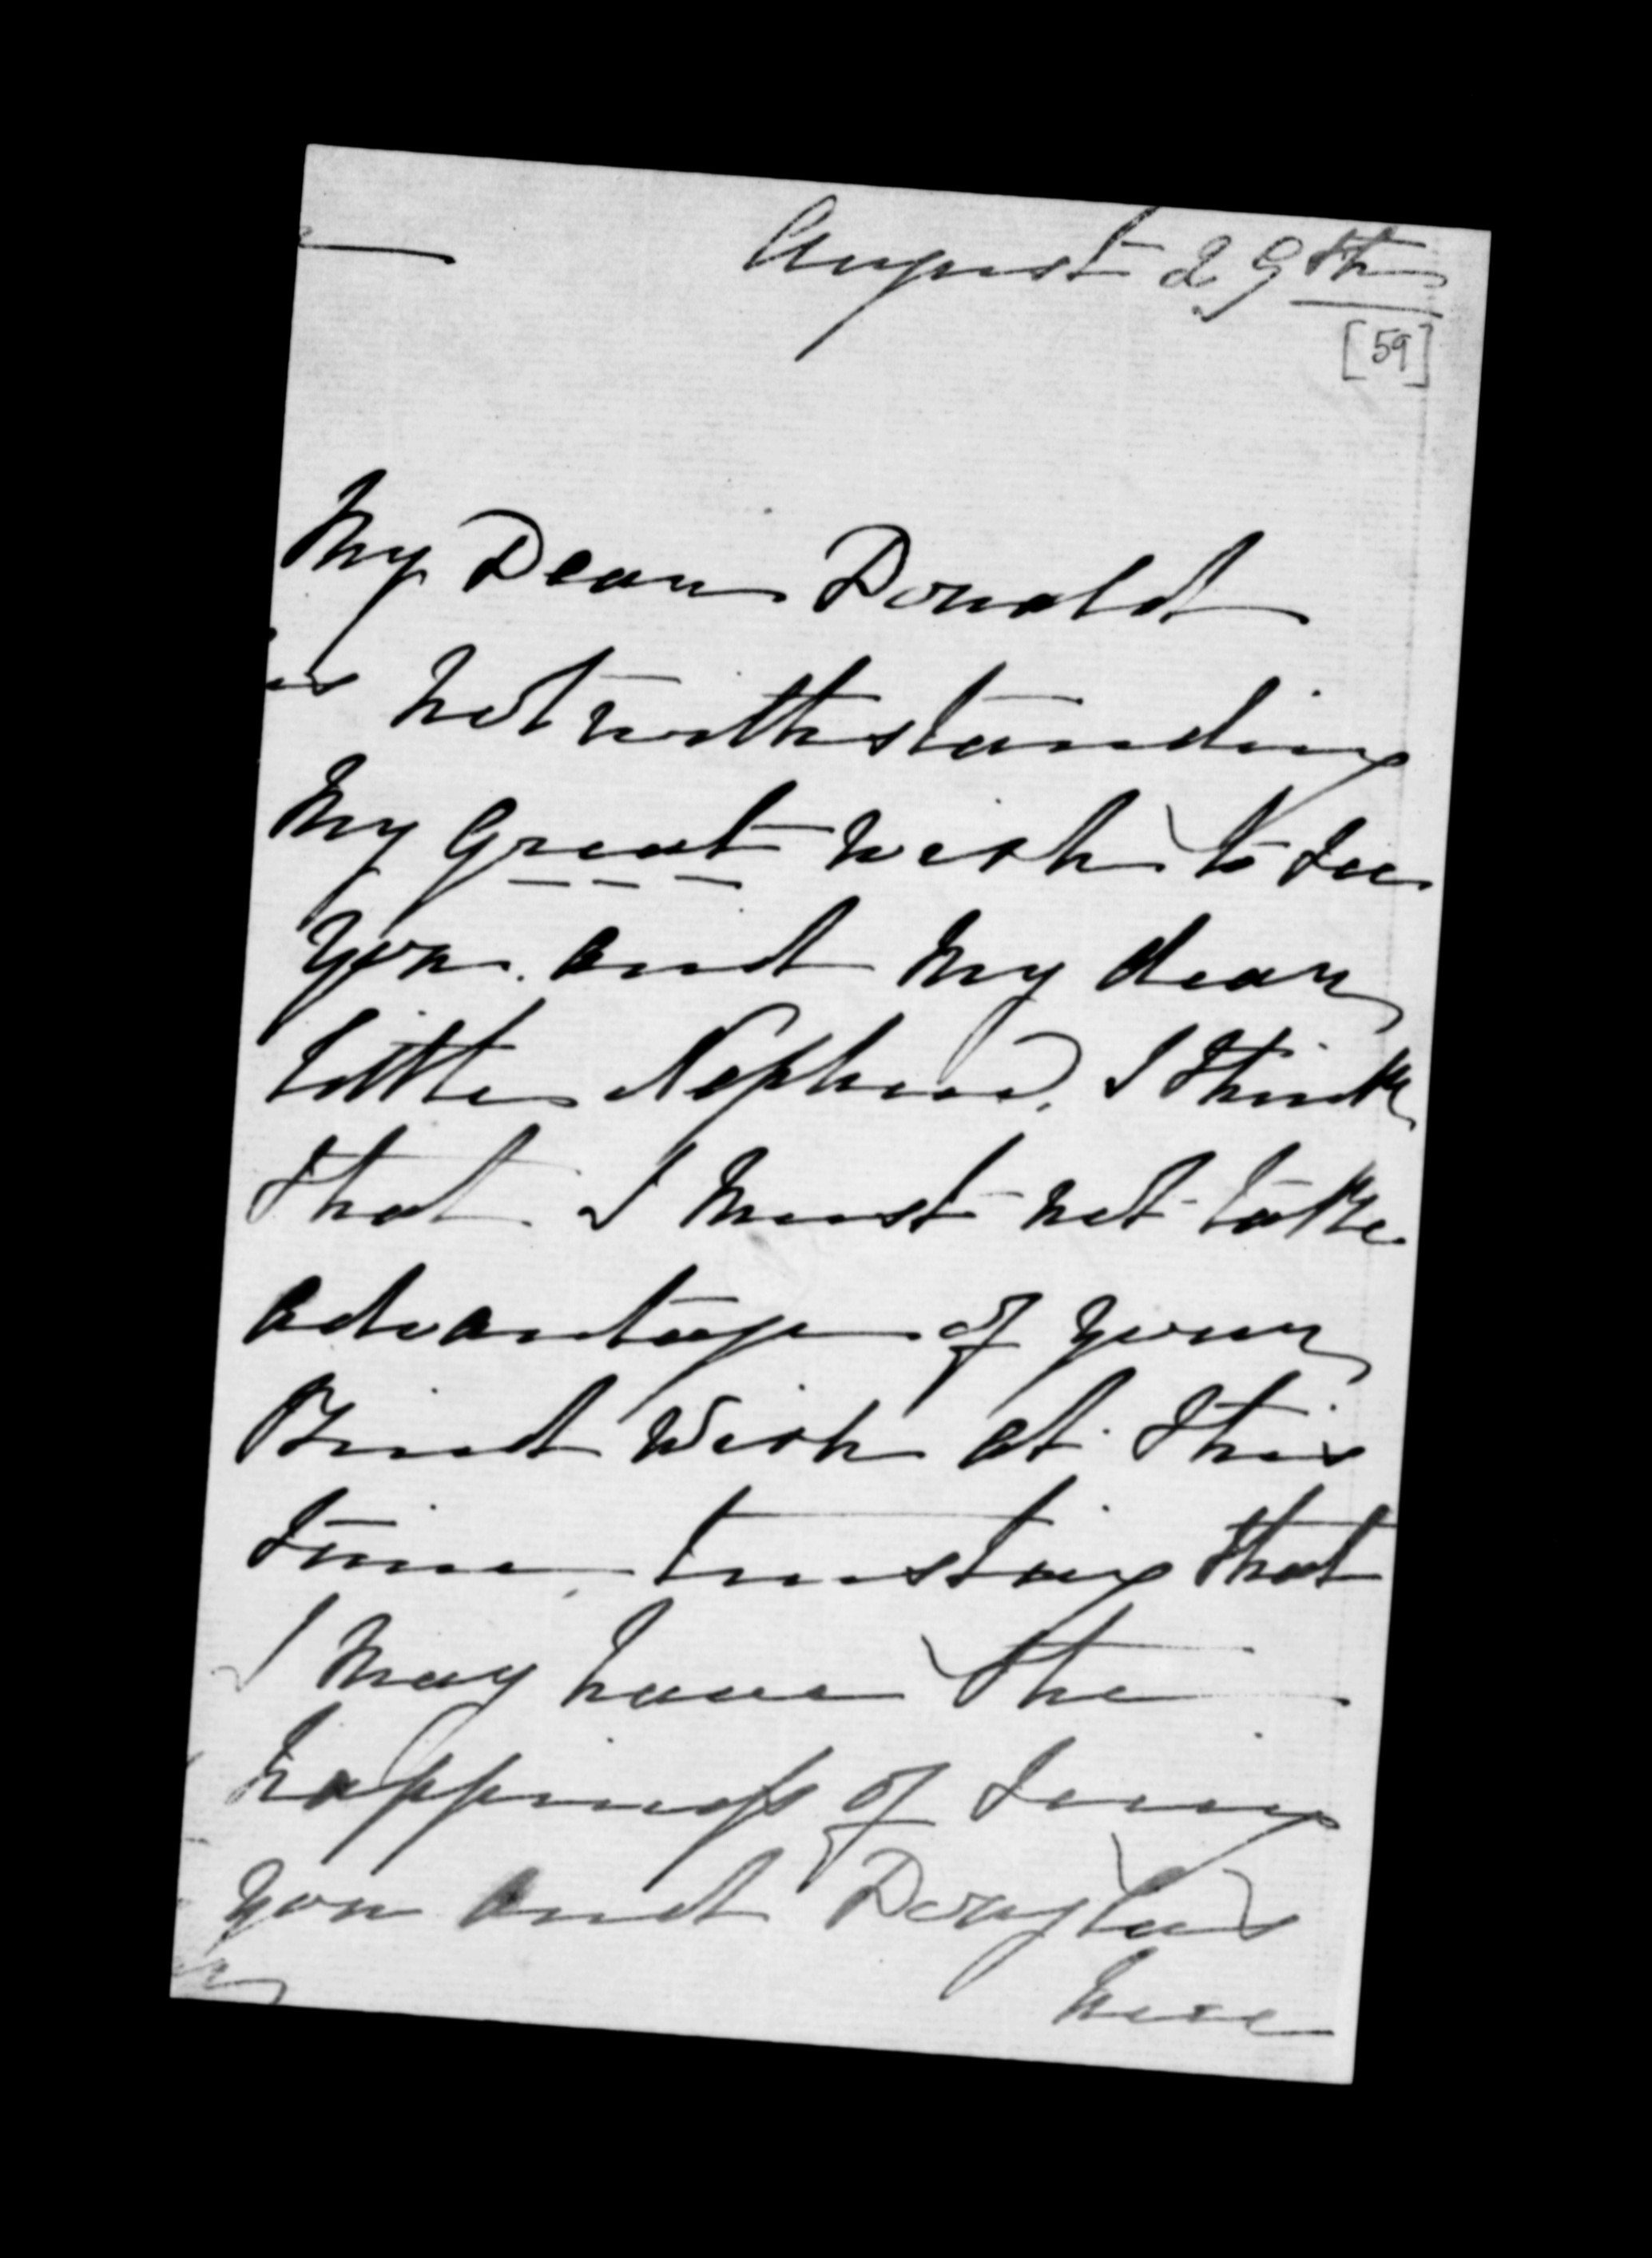 August 29th
[59]
My Dear Donald
notwithstanding
My Great wish to see
you and my dear
little Nephew, I think
that I must not take
advantage of your
kind wish at this
time, trusting that
I may have the
happiness of seeing
you and Douglas
here